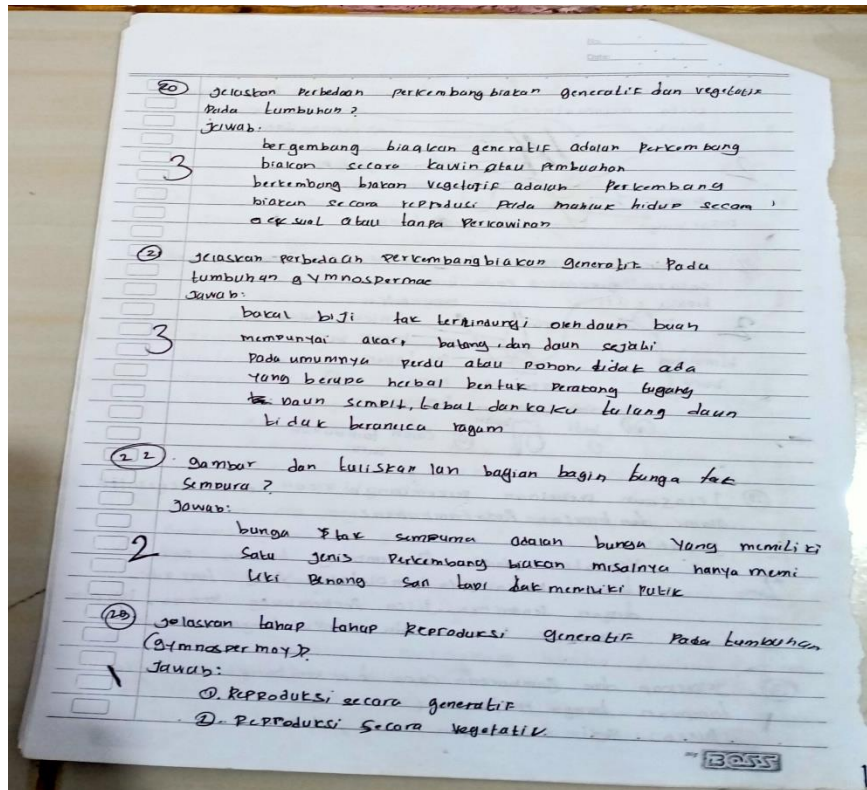 No:
Date:
20 Jelaskan Perbedaan Perkembangbiakan generatif dan vegetatif
Pada tumbuhan?
Jawab.
bergembang biaakan generatif adalah Perkembang
biakan secara kawin atau Pembuahan
3
berkembang biakan vegetatif adalah Perkembang
biakan secara reproduci Pada mahluk hidup secara
asexsual atau tanpa Perkawinan
2 Jelaskan perbedaan perkembangbiakan generatif Pada
tumbuhan gymnospermae
Jawab:
bakal biji tak terhindungi oleh daun buah
3 mempunyai akar, batang, dan daun sejahi
Pada umumnya perdu atau pohon, tidak ada
yang berupa herbal bentuk Peratang tugang
Daun sempit, tebal dan kaku tulang daun
tidak beraneca ragam
22. gambar dan tuliskan lan bagian bagin bunga tak
sempura?
Jawab:
bunga tak sempurna adalah bunga Yang memiliki
2 Satu jenis Perkembang biakan misalnya hanya memi
liki Benang San tapi dak memiliki Putik
28 Jelaskan tahap tahap Reproduksi generatif Pada tumbuhan
(gymnospermay)?
Jawab:
1
1. Reproduksi secara generatif
2. Reproduksi Secara vegetativ.
MY BOSS